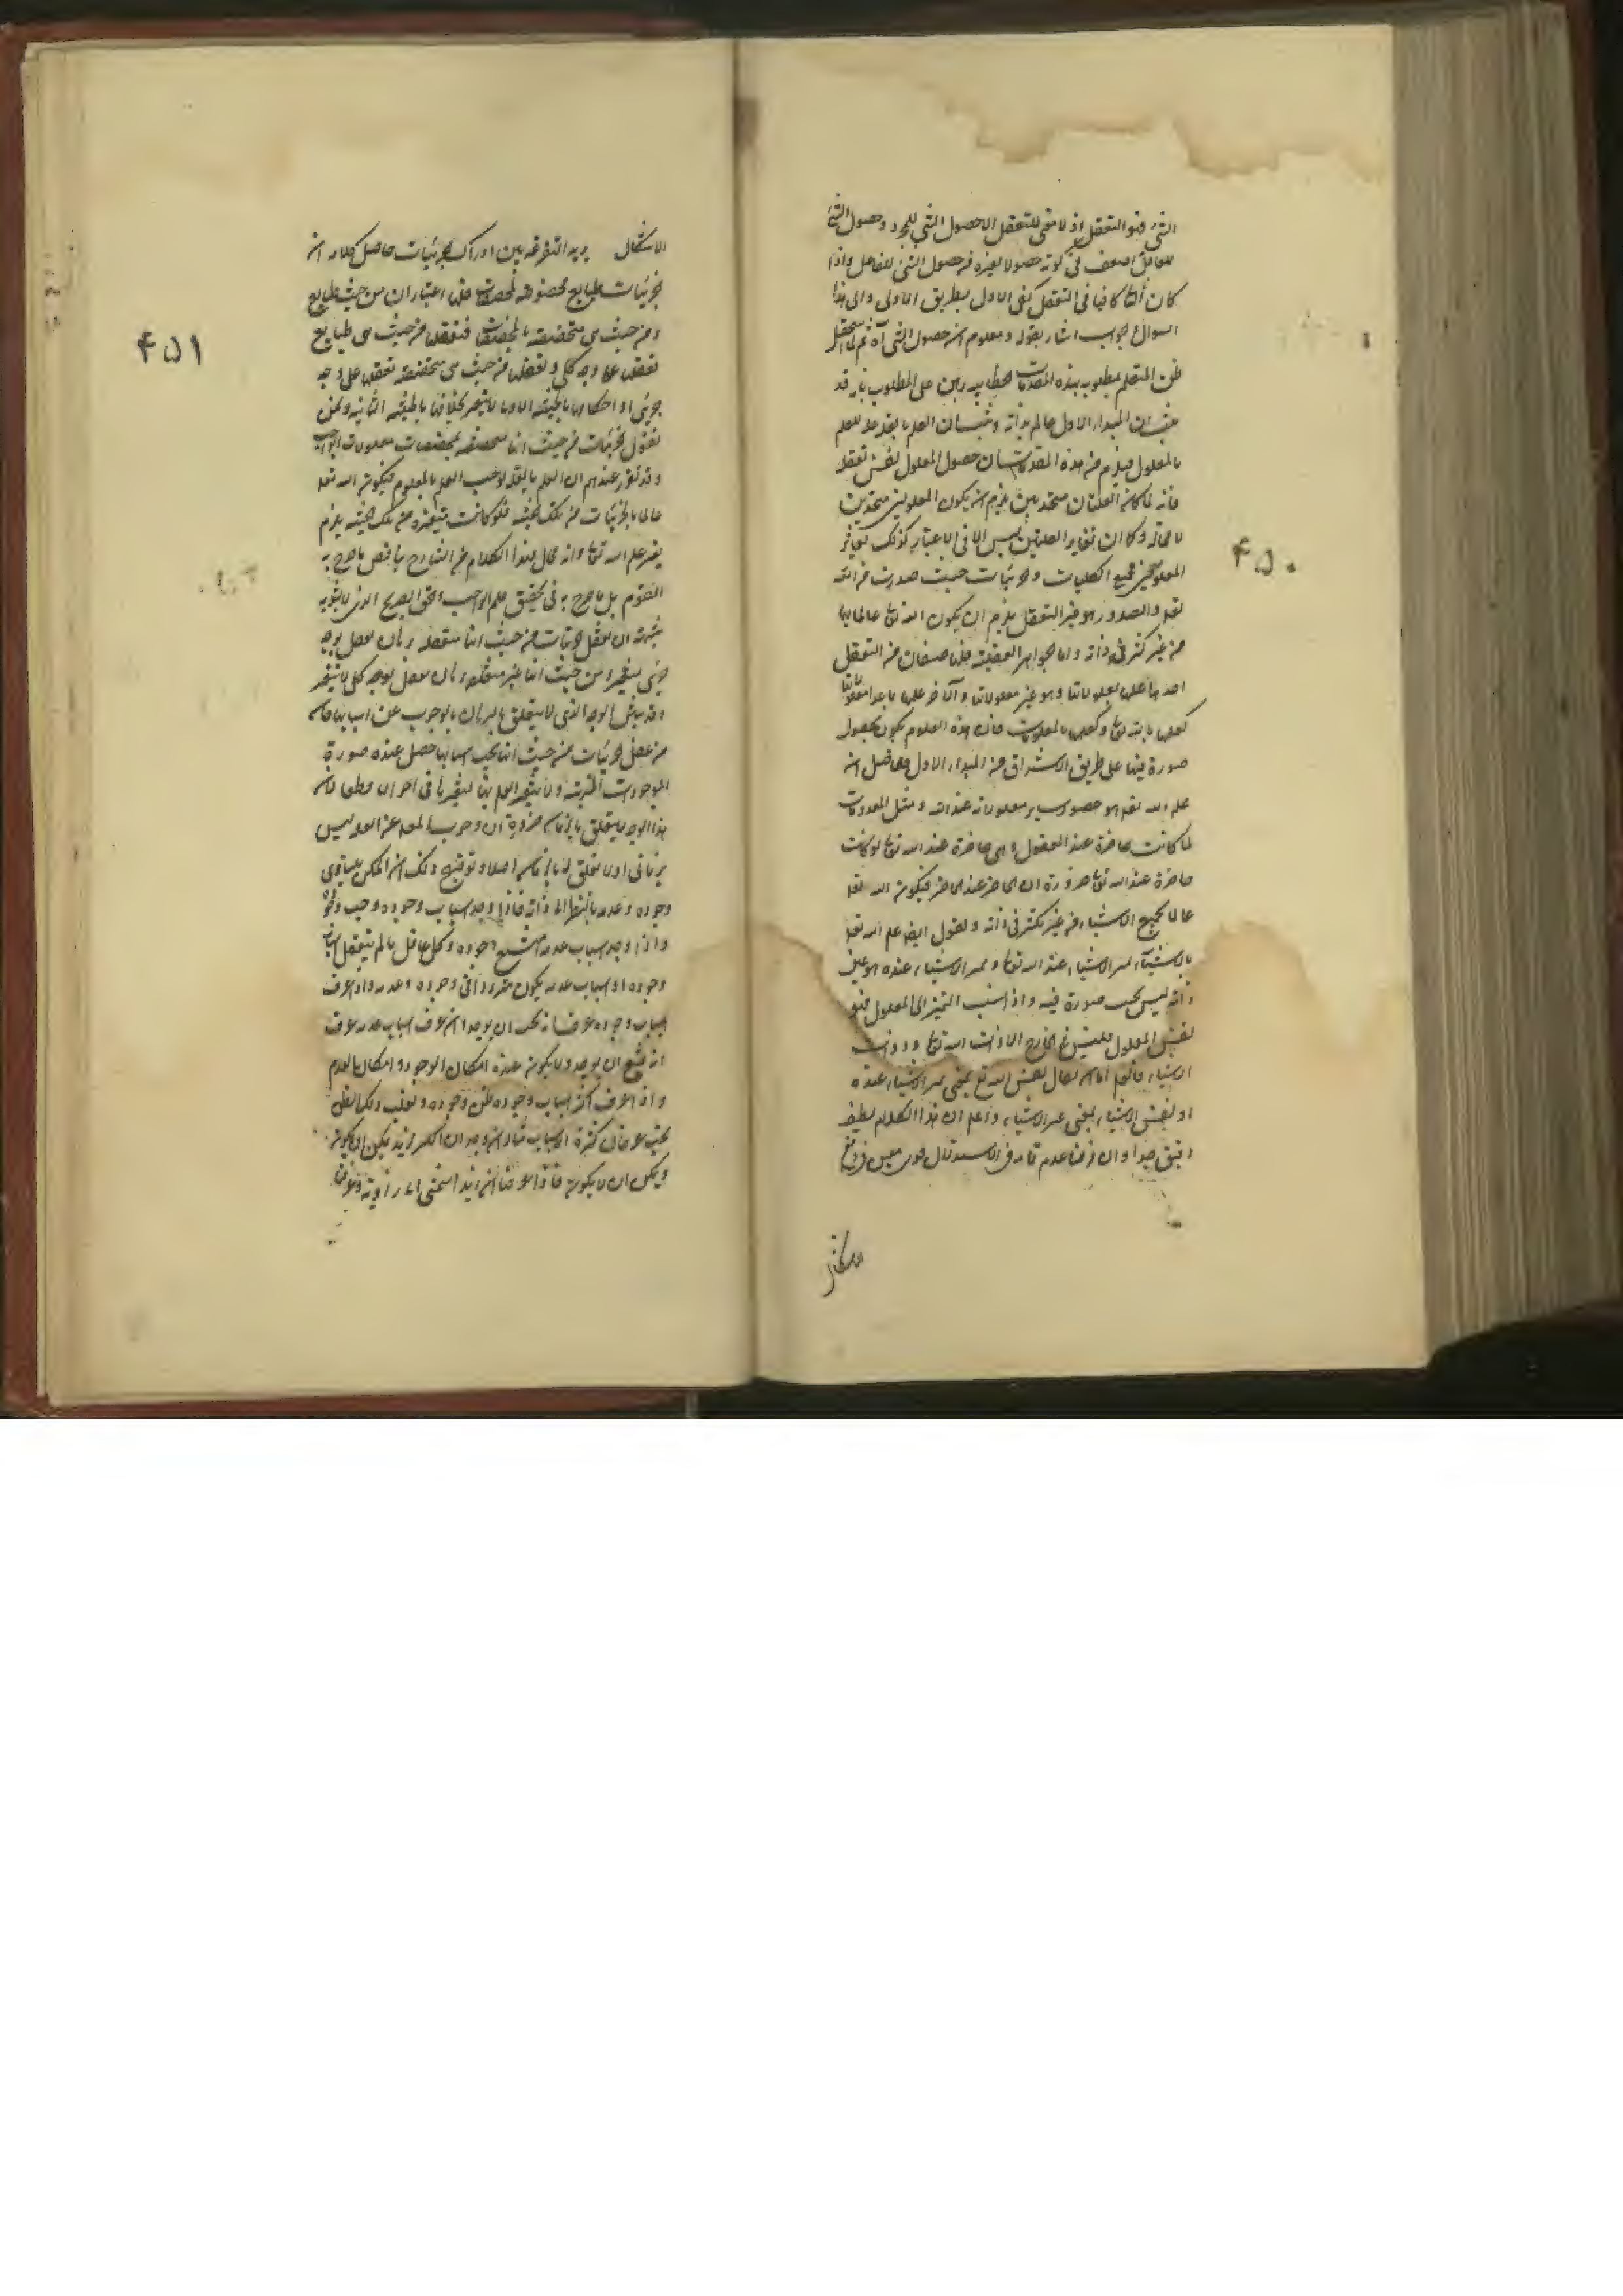 الشئ فهو التعقل اذ لا معنى للتعقل الا حصول الشئ للمجرد وحصول الشئ
للقابل اضعف فى كونه حصولا لغيره من حصول الشئ للفاعل واذا
كان الثانى كافيا فى التعقل كفى الاول بطريق الاولى والى هذا
السوال والجواب اشار بقوله ومعلوم ان حصول الشئ آه ثم لما
ظن المتعلم مطلوبه بهذه المقدمات برهن على المطلوب بانه قد
ثبت ان المبداء الاول عالم بذاته وثبت ان العلم بالعلة علة للعلم
بالمعلول فيلزم من هذه المقدمات ان حصول المعلول نفس تعقله
فانه لما كان العلتان متحدتين يلزم ان يكون المعلولين متحدين
لا محالة وكما ان تغاير العلتين ليس الا فى الاعتبار كذلك تغاير
المعلولين فجميع الكليات والجزئيات حيث صدرت من الله
تعالى والصدور هو عين التعقل يلزم ان يكون الله تعالى عالما بها
من غير كثرة فى ذاته واما الجواهر العقلية فلها صنفان من التعقل
احدهما علمها بمعلولاتها وهو عين معلولاتها والآخر علمها بما عدا معلولاتها
كعلمها بالله تعالى وكعلمها بالمعدومات فان هذه العلوم يكون بحصول
صورة فيها على طريق الاشراق من المبداء الاول فالحاصل ان
علم الله تعالى هو حصول ساير معلولاته عند الله ومثل المعدومات
لما كانت حاضرة عند العقول وهى حاضرة عند الله تعالى لو كانت
حاضرة عند الله تعالى ضرورة ان الحاضر عند الحاضر فيكون الله تعالى
عالما بجميع الاشياء من غير تكثر فى ذاته ونقول ايضا علم الله تعالى
بالاشياء تميز الاشياء عند الله تعالى وتميز الاشياء عنده هو عين
ذاته ليس بحسب صورة فيه واذا نسب التميز الى المعلول فهو
نفس المعلول فليس فى الخارج الا ذات الله تعالى وذوات
الاشياء فالعلم اما ان يقال نفس الله تعالى بمعنى تميز الاشياء عنده
او نفس الاشياء بمعنى تميز الاشياء واعلم ان هذا الكلام لطيف
دقيق جدا وان فرضنا عدم تمامه فى الاستدلال
الاشكال
۴۵۰
الاشكال يريد التفرقة بين ادراك الجزئيات حاصل كلامه ان
الجزئيات طبايع مخصوصة بمخصصات فلها اعتباران من حيث طبايع
ومن حيث هى متخصصة بالمخصصات فتعقلها من حيث هى طبايع
تعقلها على وجه كلى وتعقلها من حيث هى متخصصة تعقلها على وجه
جزئى واحكامها بالحيثية الاولى لا يتغير بخلافها بالحيثية الثانية ونحن
نقول الجزئيات من حيث انها متخصصة بمخصصات معلولات الواجب
وقد تقرر عندهم ان العلم بالعلة يوجب العلم بالمعلول فيكون الله تعالى
عالما بالجزئيات من تلك الحيثية فلو كانت متغيرة من تلك الحيثية يلزم
تغير علم الله تعالى وانه محال فهذا الكلام من الشارح يناقض ما صرح به
القوم بل ما صرح به فى تحقيق علم الواجب والحق الصريح الذى لا يشوبه
شبهة ان تعقل الجزئيات من حيث انها متعلقة بزمان تعقل بوجه
جزئى متغير ومن حيث انها غير متعلقة بزمان تعقل بوجه كلى لا يتغير
وقد بين الوجه الذى لا يتعلق بالزمان بالوجوب عن اسبابها فان
من تعقل الجزئيات من حيث انها يجب باسبابها حصل عنده صورة
الموجودات المترتبة ولا يتغير العلم بها لتغيرها فى احوالها فان
هذا الوجه لا يتعلق بالزمان ضرورة ان وجوب المعلول عن العلة ليس
بزمانى اولا تعلق له بالزمان اصلا وتوضيح ذلك ان الممكن يتساوى
وجوده وعدمه بالنظر الى ذاته فاذا وجد اسباب وجوده وجب وجوده
واذا وجد اسباب عدمه امتنع وجوده وكل عاقل ما لم يتعقل اسباب
وجوده او اسباب عدمه يكون مترددا فى وجوده وعدمه واذا عرف
اسباب وجوده عرف انه يجب ان يوجد وان عرف اسباب عدمه عرف
انه يمتنع ان يوجد ولا يكون عنده امكان الوجود وامكان العدم
واذا عرف اكثر اسباب وجوده ظن وجوده ويغلب ذلك الظن
بحسب عرفان كثرة الاسباب مثلا وجدان الكنز لزيد يمكن ان يكون
ويمكن ان لا يكون فاذا عرفنا ان زيدا مشى الى زاوية وعرفنا
۴۵۱